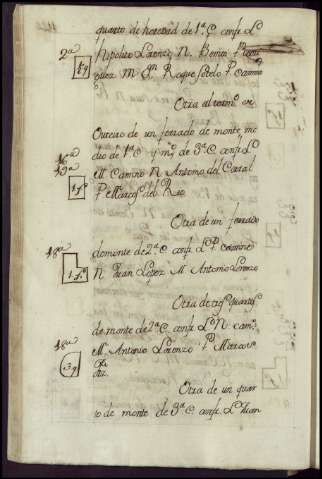 quarto de heredad de 1ª C confr. L.
2ª Hipolito Lorenzo N. Bernar
M. Jn. Roque Sotelo P. Camino
Otra al term.º de
Outeiro de un ferrado de monte me
16ª dio de 1ª C y m.º de 3ª C confr. L.
M. Camino N. Antonio del Canal
P. Marcos del Rio
Otra de un ferrado
18ª de monte de 2ª C confr. L. P. Camino
N. Juan Lopez M. Antonio Lorenzo
Otra de tres quartos
de monte de 2ª C confr. L. N. cam.º
18ª M. Antonio Lorenzo P. Marcos
Otra de un quar
to de monte de 3ª C confr. L. Juan